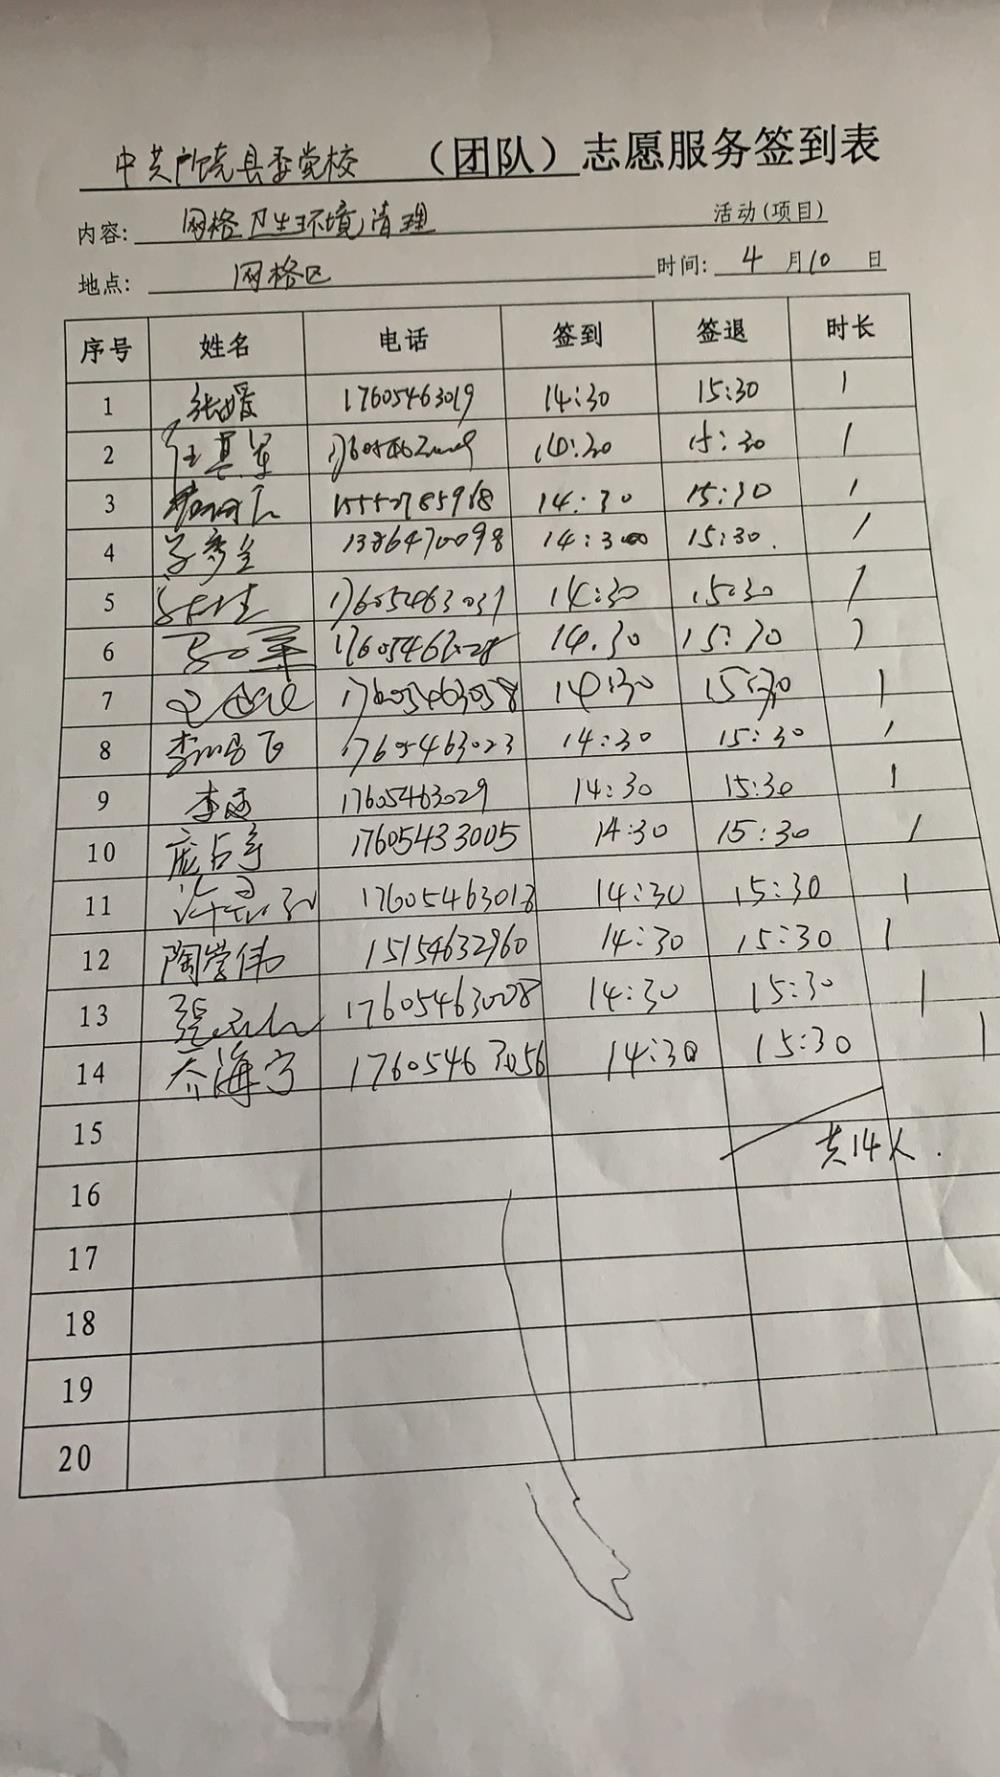 中共广饶县委党校 （团队）志愿服务签到表
内容: 网格卫生环境清理 活动(项目)
地点: 网格区 时间: 4 月 10 日
序号 姓名 电话 签到 签退 时长
1 张媛 17605463019 14:30 15:30 1
2 14:30 15:30 1
3 15552785918 14:30 15:30 1
4 13864700098 14:30 15:30. 1
5 17605463031 14:30 15:30 1
6 14.30 15:30 1
7 17605463058 14:30 15:30 1
8 17605463023 14:30 15:30 1
9 17605463029 14:30 15:30 1
10 17605433005 14:30 15:30 1
11 17605463018 14:30 15:30 1
12 陶学伟 15154632960 14:30 15:30 1
13 17605463008 14:30 15:30 1
14 乔海宁 17605463056 14:30 15:30 1
15
共14人.
16
17
18
19
20